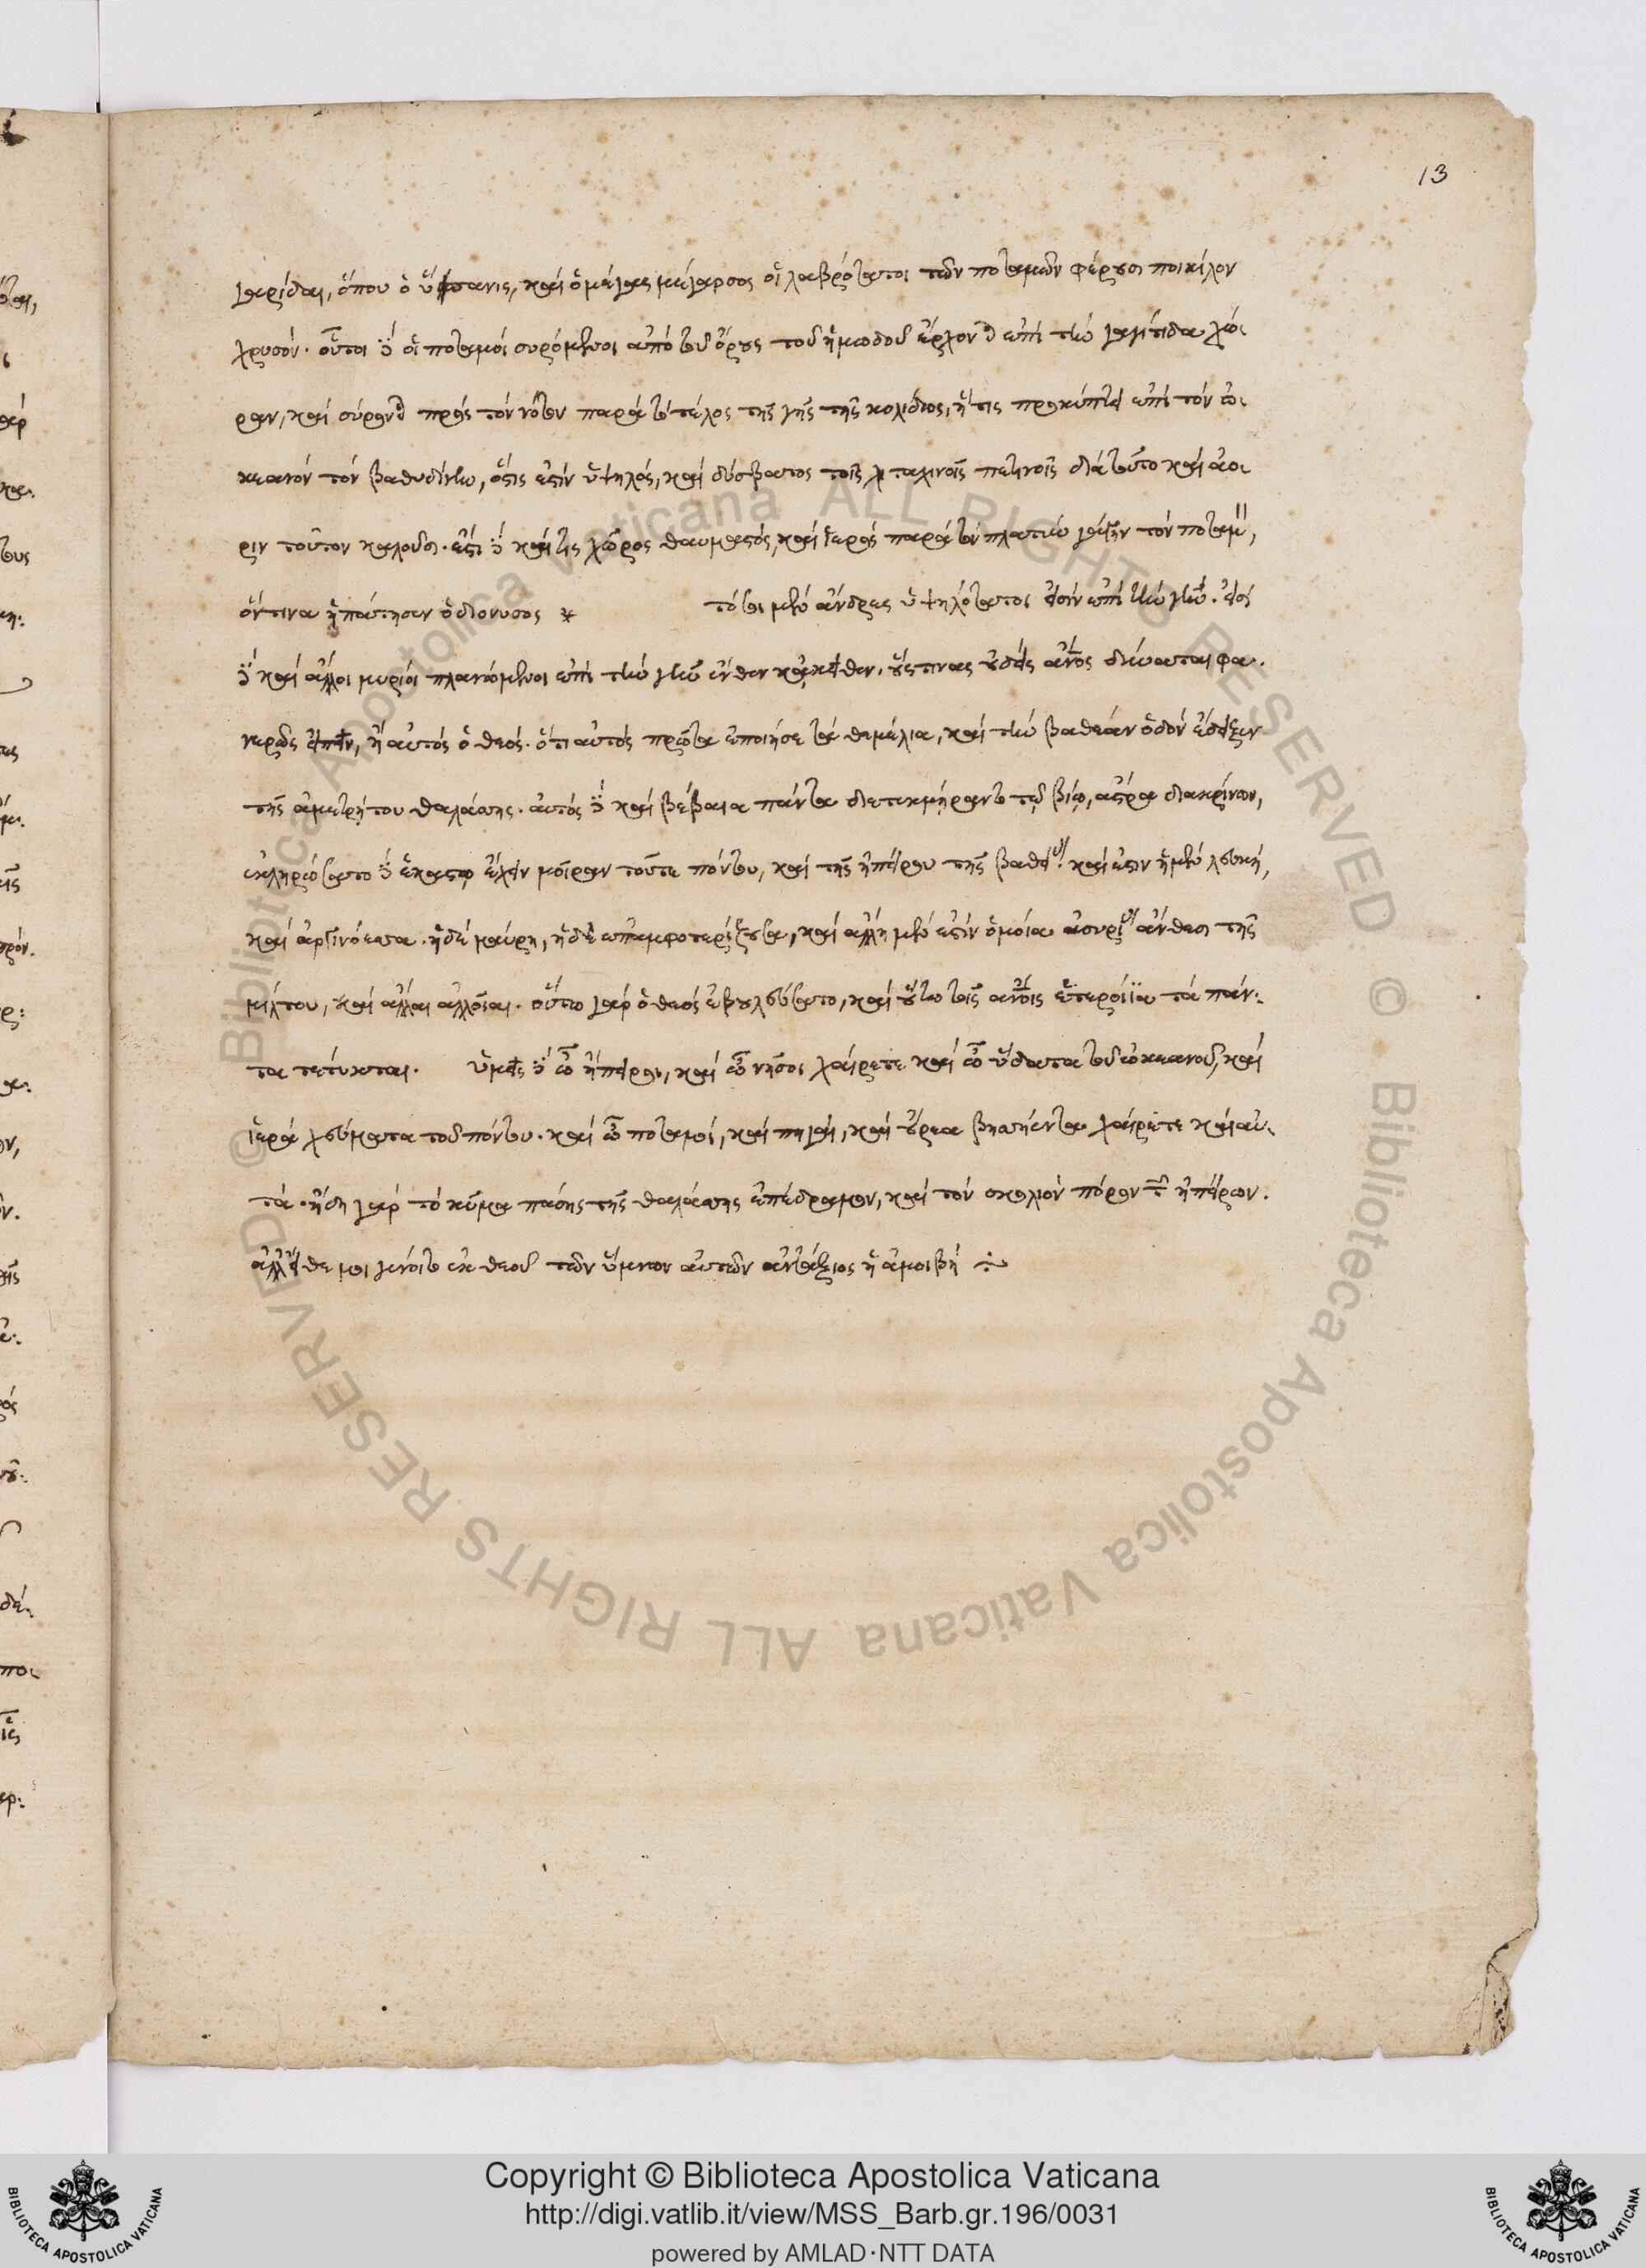 13
γαρίδαι, ὅπου ὁ ὕπανις, καὶ ὁ μέγας μέγαρσος οἱ λαβρότατοι τῶν ποταμῶν φέρουσι ποικίλον
χρυσόν. οὗτοι δὲ οἱ ποταμοὶ συρόμενοι ἀπὸ τοῦ ὄρους τοῦ ἠμωδοῦ ἔρχονται ἐπὶ τὴν γαγίτιδα χώ-
ραν, καὶ σύρονται πρὸς τὸν νότον παρὰ τὸ τέλος τῆς γῆς τῆς κολίδιος, ἥτις προκύπτει ἐπὶ τὸν ὠ-
κεανὸν τὸν βαθυδίνην, ὅστις ἐστὶν ὑψηλός, καὶ δύσβατος τοῖς ταχινοῖς πετινοῖς διὰ τοῦτο καὶ ἀο-
ριν τοῦτον καλοῦσι. ἔστι δὲ καί τις χῶρος θαυμαστός, καὶ ἱερὸς παρὰ τὸν πλατὺν γάγγην τὸν ποταμὸν,
ὅντινα ἠπάτησεν ὁ διονυσος * τόσοι μὲν ἄνδρες ὑψηλότατοι εἰσὶν ἐπὶ τὴν γῆν. εἰσὶ
δὲ καὶ ἄλλοι μυρίοι πλανώμενοι ἐπὶ τὴν γῆν ἔνθεν κἀκεῖθεν. οὕστινας οὐδεὶς ἄνος δύναται φα-
νερῶς εἰπεῖν, ἢ αὐτὸς ὁ θεός. ὅτι αὐτὸς πρῶτα ἐποίησε τὰ θεμέλια, καὶ τὴν βαθεῖαν ὁδὸν ἔδειξεν
τῆς ἀμετρήτου θαλάσσης. αὐτὸς δὲ καὶ βέβαια πάντα διετεκμήραντο τῷ βίῳ, ἄστρα διακρίνων,
ἐκληρώσατο δὲ ἑκάστῳ ἔχειν μοῖραν τοῦτε πόντου, καὶ τῆς ἠπείρου τῆς βαθείας. καὶ ἔστιν ἡ μὲν λευκή,
καὶ ἀργινόεσσα. ἡ δὲ μαύρη, ἡ δὲ ἐπαμφοτερίζουσα, καὶ ἄλλη μὲν ἐστὶν ὁμοία ἀσυρίοις ἄνθεσι τῆς
μίλτου, καὶ ἄλλαι ἀλλοῖαι. οὕτω γὰρ ὁ θεὸς ἐβουλεύσατο, καὶ οὕτω τοῖς ἀνοις ἑτεροίϊα τὰ πάν-
τα τέτυκται. ὑμεῖς δὲ ὦ ἤπειροι, καὶ ὦ νῆσοι χαίρετε καὶ ὦ ὕδατα τοῦ ὠκεανοῦ, καὶ
ἱερὰ χεύματα τοῦ πόντου. καὶ ὦ ποταμοί, καὶ πηγαί, καὶ οὔρεα βησσήεντα χαίρετε καὶ αὐ-
τά. ἤδη γὰρ τὸ κῦμα πάσης τῆς θαλάσσης ἐπέδραμον, καὶ τὸν σκολιὸν πόρον τῶν ἠπείρων.
ἀλλ' εἴθε μοι γένοιτο ἐκ θεοῦ τῶν ὕμνων αὐτῶν ἀντάξιος ἡ ἀμοιβή
Copyright © Biblioteca Apostolica Vaticana
http://digi.vatlib.it/view/MSS_Barb.gr.196/0031
powered by AMLAD·NTT DATA